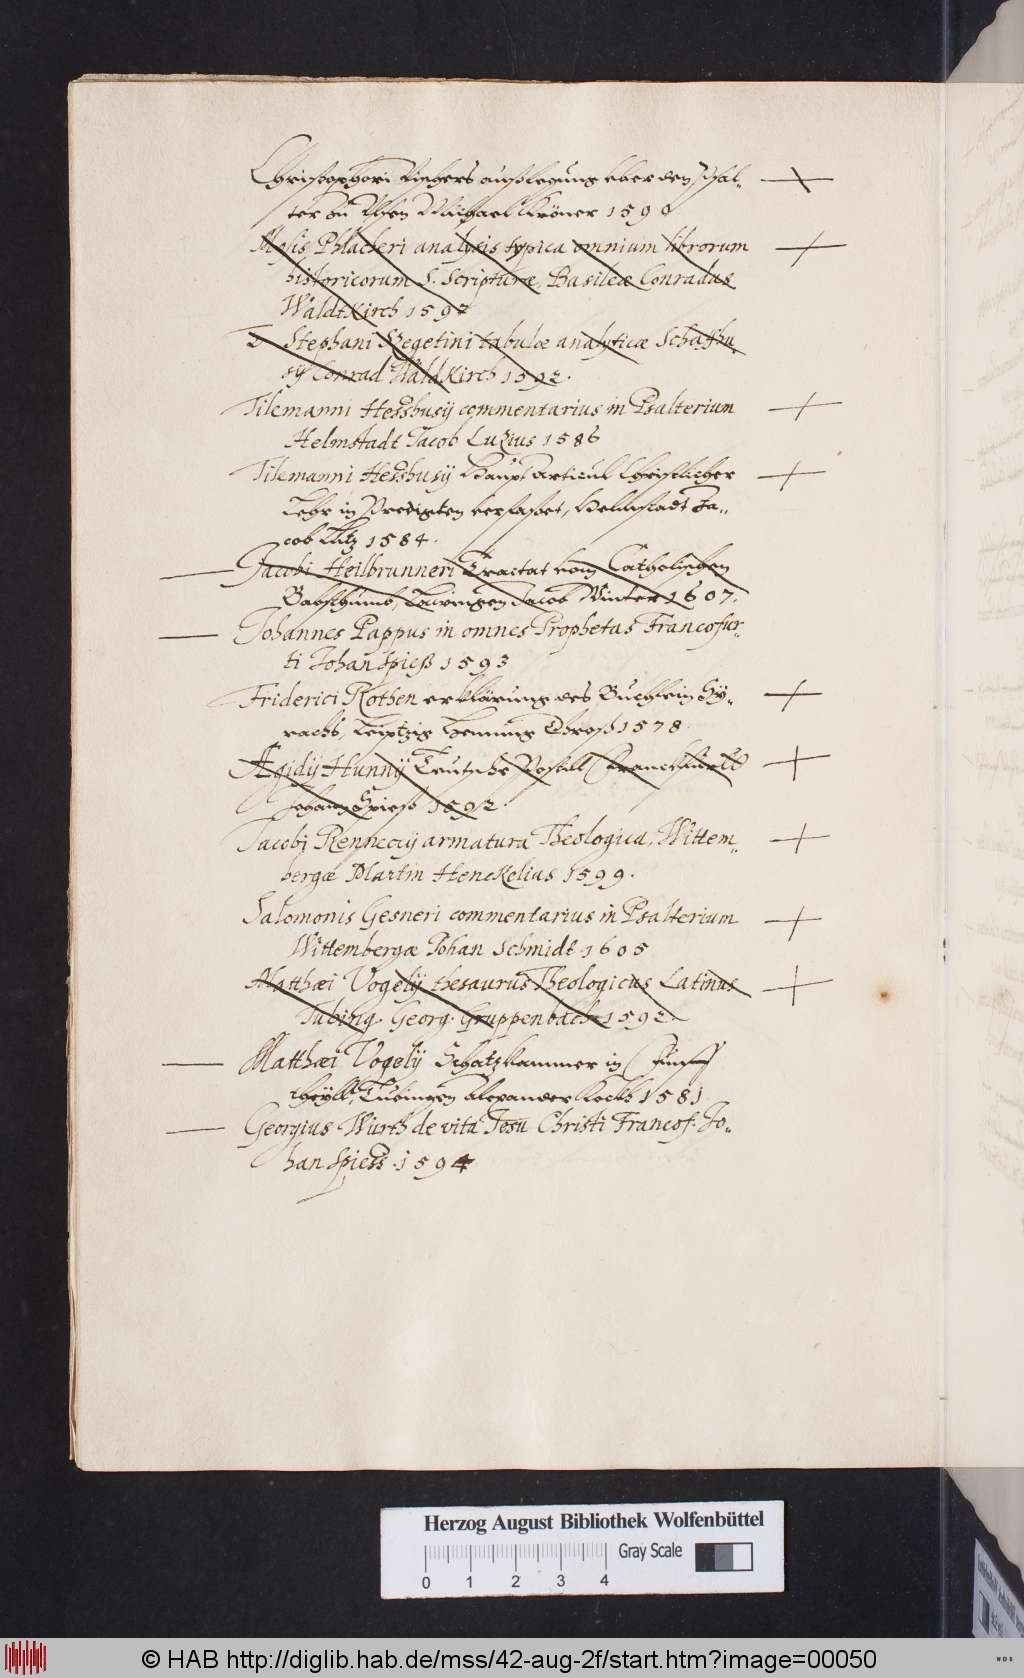 Christophori außlegung vber den psal-
ter zu Michael Kröner 1590
Mosis Phlacheri analysis typica omnium librorum
historicorum S. Scripturæ, Basileæ Conradus
Waldtkirch 1597
D Stephani Szegetini tabulæ analyticæ Schaffhu-
sij Conrad Waldkirch 1592.
Tilemanni Hesshusij commentarius in Psalterium
Helmstadt Jacob Luzius 1586
Tilemanni Hesshusij Haupt Articul Christlicher
Lehr in Predigten verfasset, Helmstadt Ja-
cob Lutz 1584.
Jacobi Heilbrunneri Tractat vom Catholischen
Babstumb, Lauingen Jacob Winter 1607.
Johannes Pappus in omnes Prophetas Francofur-
ti Johan Spieß 1593
Friderici Rothen erklärung des Buchlein Sy-
rachs, Leiptzig Henning Groß 1578.
Ægidij Hunnij Teutsche Postill Franckfurtt
Johann Spieß 1592.
Jacobi Rennecij armatura Theologica, Wittem-
bergæ Martin Henckelius 1599.
Salomonis Gesneri commentarius in Psalterium
Wittembergæ Johan Schmidt 1605
Matthæi Vogelij thesaurus Theologicus Latinus
Tubing. Georg. Gruppenbach 1592.
Matthæi Vogelij Schatzkammer in Fünff
theyll, Tubingen Alexander Hock 1581
Georgius Wurth de vita Jesu Christi Francof. Jo-
han Spiess. 1594
Herzog August Bibliothek Wolfenbüttel
Gray Scale
0 1 2 3 4
© HAB http://diglib.hab.de/mss/42-aug-2f/start.htm?image=00050